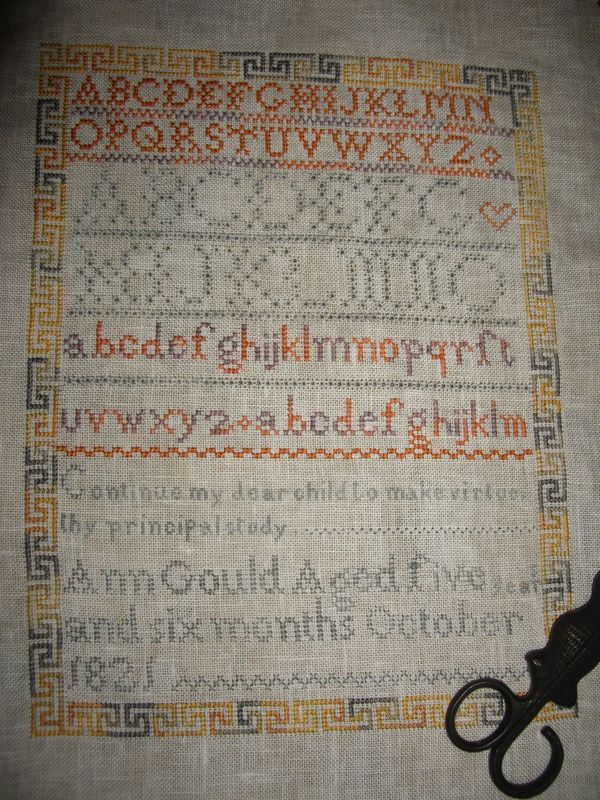 ABCDEFGHIJKLMN
OPQRSTUVWXYZ
ABCDEFG
HIJKLMNO
abcdefghijklmnopqrſt
uvwxyz abcdefghijklm
Continue my dear child to make virtue
thy principal study
Ann Gould Aged five years
and six months October
1821